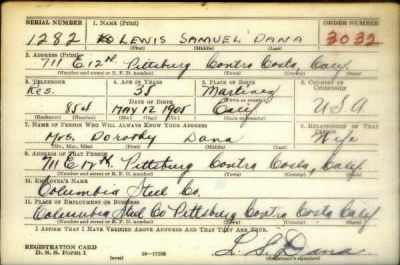 SERIAL NUMBER 1. NAME (Print) ORDER NUMBER
1282 LEWIS SAMUEL DANA 3032
(First) (Middle) (Last)
2. ADDRESS (Print)
711 E 12th Pittsburg Contra Costa, Calif
(Number and street or R. F. D. number) (Town) (County) (State)
3. TELEPHONE 4. AGE IN YEARS 5. PLACE OF BIRTH 6. COUNTRY OF CITIZENSHIP
Res. 35 Martinez
DATE OF BIRTH (Town or county)
854 MAY 12 1905 Calif U.S.A
(Mo.) (Day) (Yr.) (State or country)
7. NAME OF PERSON WHO WILL ALWAYS KNOW YOUR ADDRESS 8. RELATIONSHIP OF THAT PERSON
Mrs. Dorothy Dana Wife
(Mr., Mrs., Miss) (First) (Middle) (Last)
9. ADDRESS OF THAT PERSON
711 E 12th, Pittsburg Contra Costa, Calif
(Number and street or R. F. D. number) (Town) (County) (State)
10. EMPLOYER'S NAME
Columbia Steel Co.
11. PLACE OF EMPLOYMENT OR BUSINESS
Columbia Steel Co Pittsburg Contra Costa Calif
(Number and street or R. F. D. number) (Town) (County) (State)
I AFFIRM THAT I HAVE VERIFIED ABOVE ANSWERS AND THAT THEY ARE TRUE.
REGISTRATION CARD
D. S. S. Form 1 (over) L. S. Dana
(Registrant's signature)